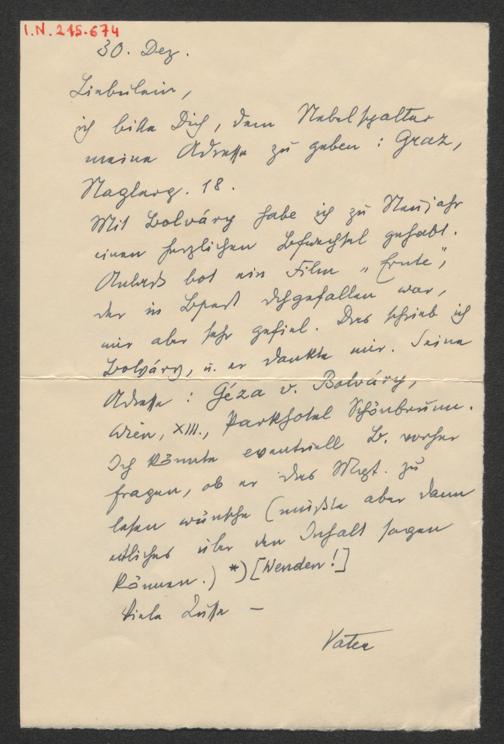 I.N. 215.674
30. Dez.
Liebulein,
ich bitte Dich, dem Nebelspalter
meine Adresse zu geben: Graz,
Naglerg. 18.
Mit Bolváry habe ich zu Neujahr
einen herzlichen Bfwechsel gehabt.
Anlass bot ein Film „Ernte",
der in Bpest dchgefallen war,
mir aber sehr gefiel. Das schrieb ich
Bolváry, u. er dankte mir. Seine
Adresse: Géza v. Bolváry,
Wien, XIII., Parkhotel Schönbrunn.
Ich könnte eventuell B. vorher
fragen, ob er das Mspt. zu
lesen wünsche (müßte aber dann
etliches über den Inhalt sagen
können.) *) [Wenden!]
Viele Küsse –
Vater